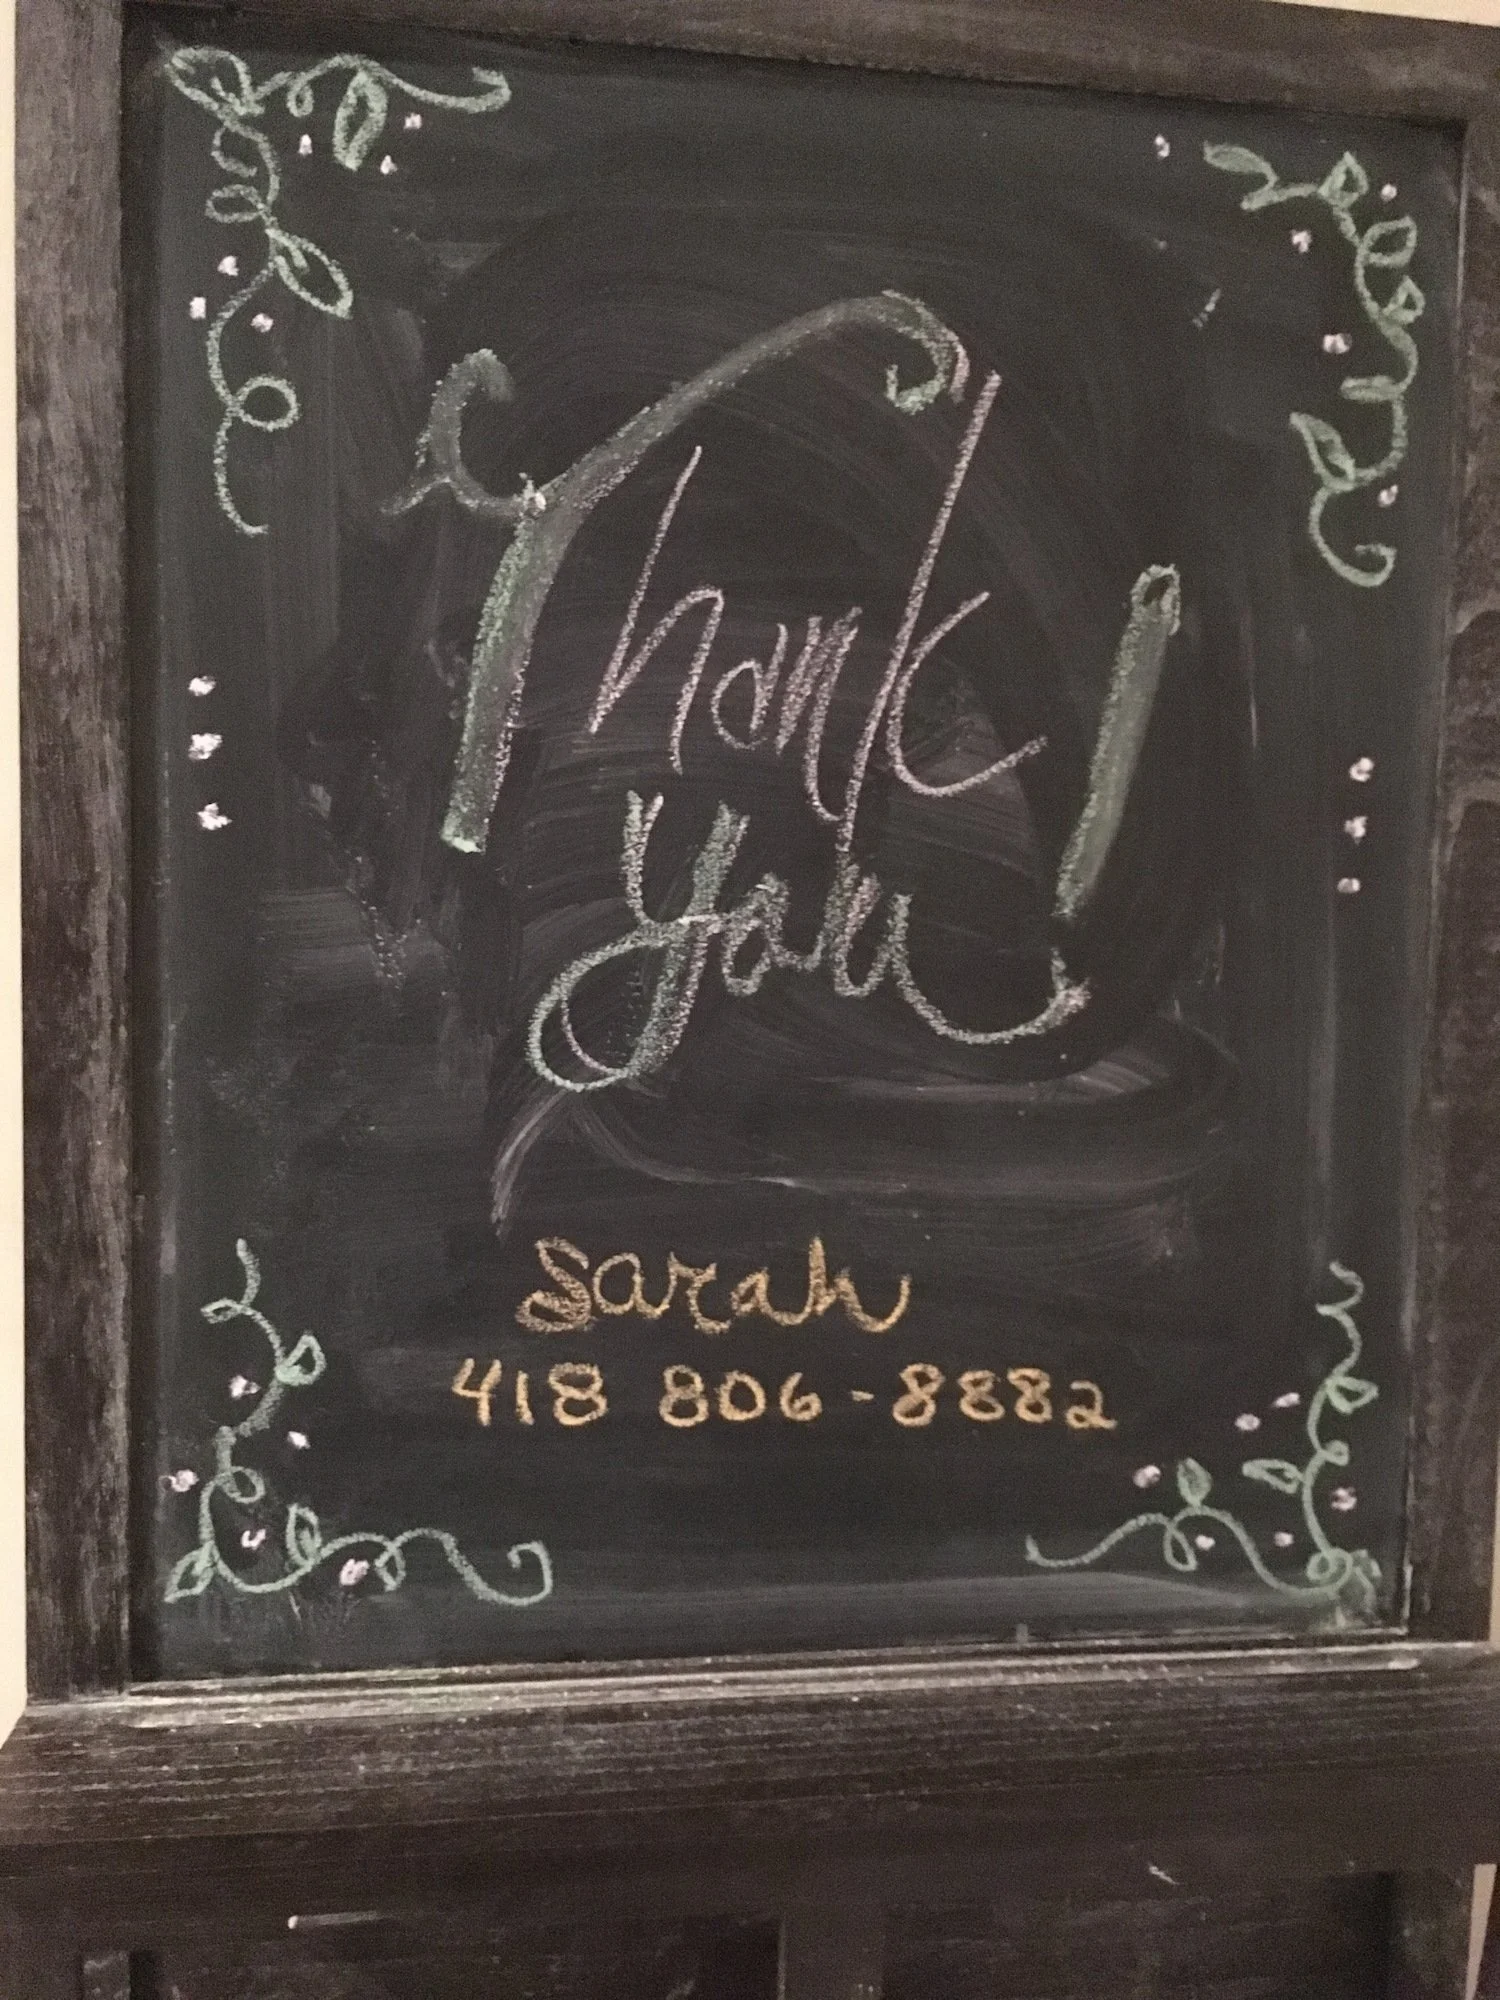 Thank
you!
Sarah
418 806-8882